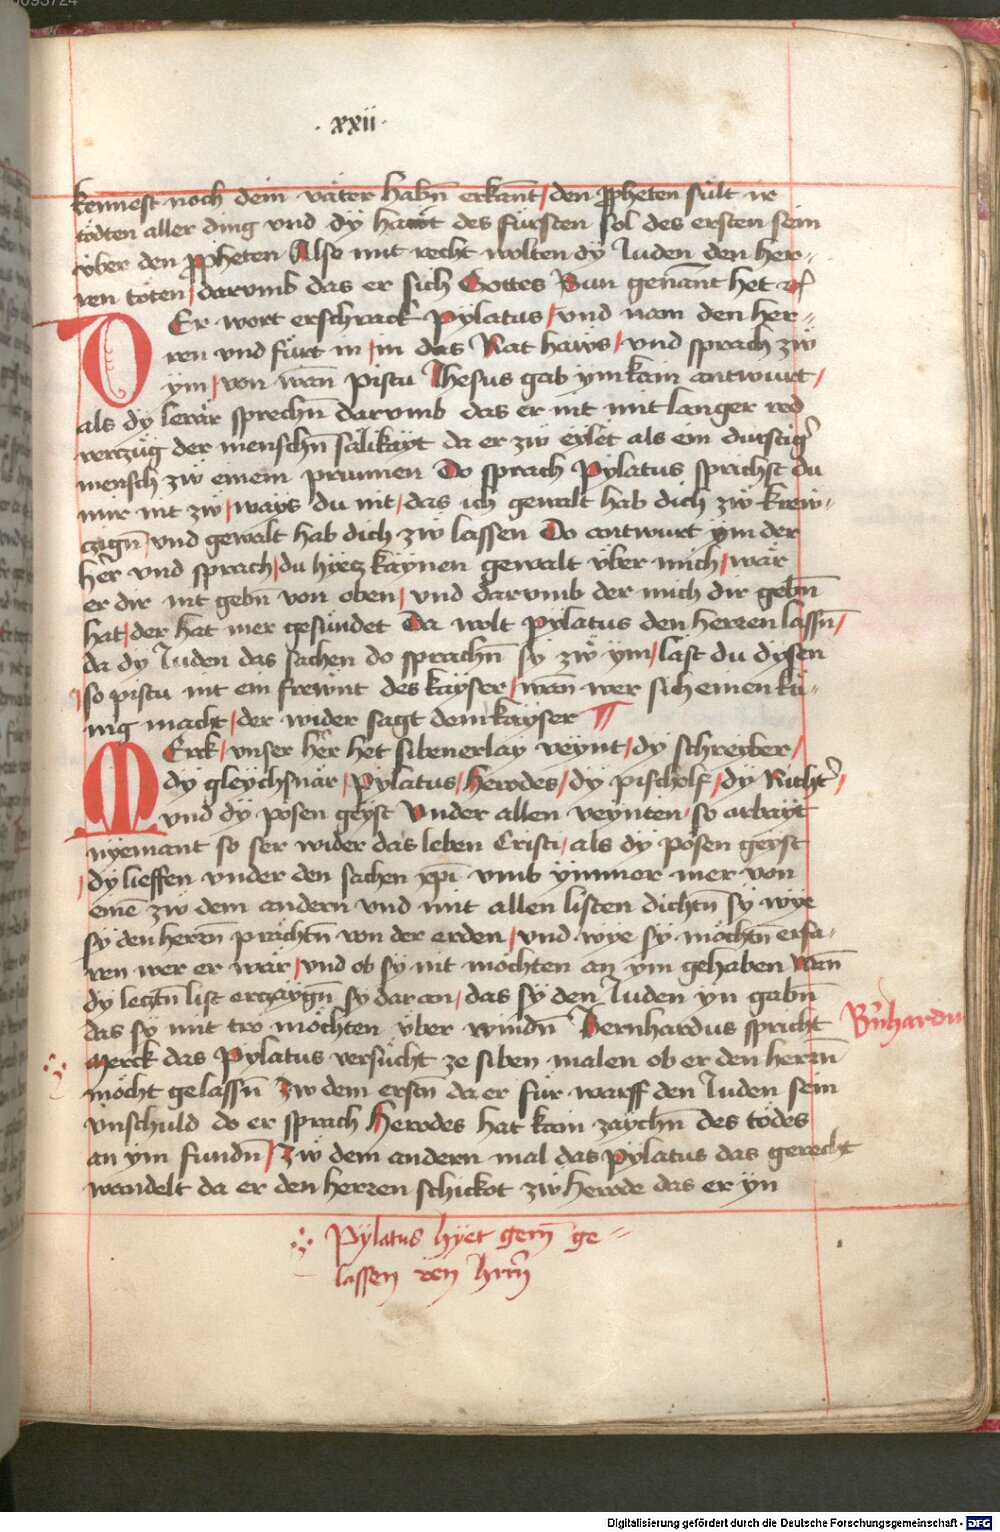 · xxii ·
kennest noch dein väter habn̄ erkan̄t / den ꝓpheten sült ir
tödten aller ding vnd dÿ hant des fürsten sol des ersten sein
über den ꝓpheten Also mit recht wolten dÿ Juden den her=
ren töten / darvmb das er sich Gottes Sun genan̄t het
DEr wort erschrack Pÿlatus / vnd nam den her=
ren vnd fürt in / in das Rat haws / vnd sprach zw̎
ÿm / von wan̄ pistu Jhesus gab ÿm kain antwurt /
als dÿ lerär sprechn̄ darvmb das er nit mit langer red
verzüg der menschn̄ sälikäyt da er zw̎ eylet als ein durstigʼ
mensch zw̎ einem prunnen Do sprach Pÿlatus sprichst du
mir nit zw̎ / ways du nit / das ich gewalt hab dich zw̎ krew=
czign̄ / vnd gewalt hab dich zw̎ lassen Do antwurt ÿm der
her̄ vnd sprach / du hyetz käynen gewalt über mich / wär
er dir nit gebn̄ von oben / vnd darvmb der mich dir gebn̄
hat / der hat mer gesündet Da wolt Pylatus den herren lassn̄ /
da dÿ Juden das sachen do sprachn̄ sÿ zw̎ ÿm / läst du dÿsen
/ so pistu nit ein frewnt des käÿser / wan̄ wer sich einen kü=
nig macht / der wider sagt dem käyser
MErck / vnser her̄ het sibenerlaÿ veÿnt / dÿ schreÿber /
dÿ gleÿchsnär / Pÿlatus / herodes / dÿ pischölf / dÿ Richtʼ /
vnd dÿ posen geÿst Vnder allen veÿnten / so arbaÿt
nÿemant so ser wider das leben Cristi / als dÿ pösen geÿst
/ dÿ lieffen vnder den sachen xp̄i vmb ÿmmer mer von
eine᷑ zw̎ dem andern vnd mit allen listen dichtn̄ sÿ wÿe
sÿ den heren̄ prächtn̄ von der erden / vnd wÿe sÿ möchtn̄ erfa=
ren wer er wär / vnd ob sÿ nit möchten an ÿm gehaben Wan̄
dÿ leczt̄n list erczäÿgn̄ sÿ dar an / das sÿ den Juden ÿn gabn̄
das sÿ mit tw möchten über windn̄ Bernhardus spricht
Bʼnhardu
Merck das Pÿlatus versücht ze siben malen ob er den herrn̄
möcht gelassn̄ Zw dem erstn̄ da er für warff den Juden sein
vnschuld do er sprach Herodes hat kain zaychn̄ des tödes
an ÿm fundn̄ / Zw̎ dem andern mal das pÿlatus das gerecht
wandelt da er den herren schickot zw̎ herode das er ÿn
Pÿlatus hÿet gern̄ ge=
lassen den hrrn̄